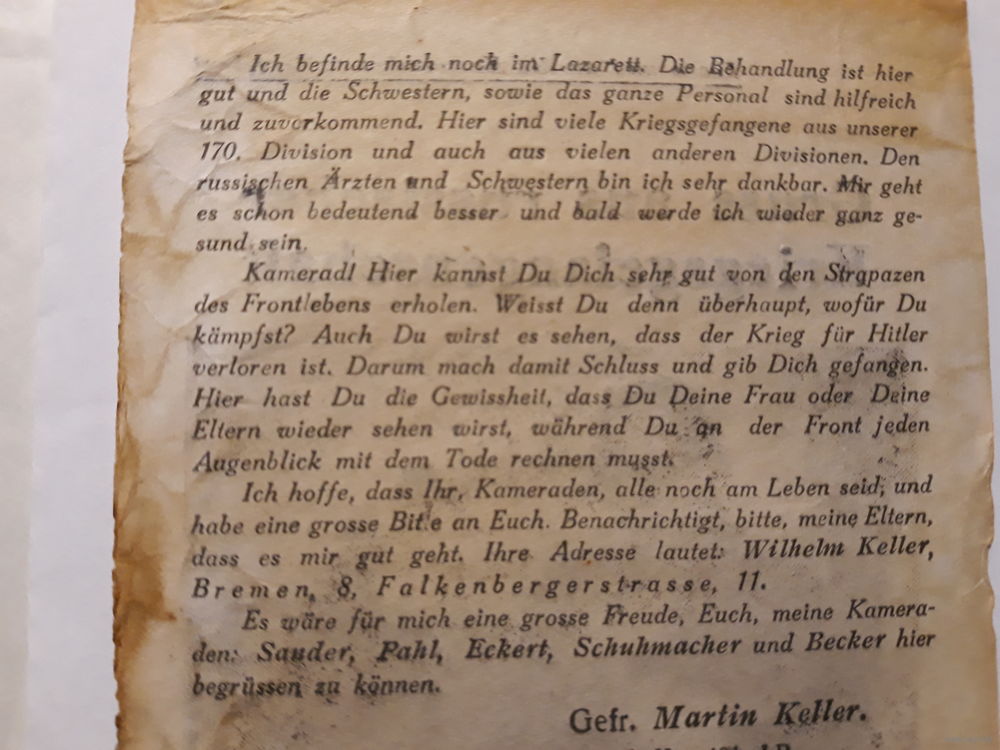 Ich befinde mich noch im Lazarett. Die Behandlung ist hier
gut und die Schwestern, sowie das ganze Personal sind hilfreich
und zuvorkommend. Hier sind viele Kriegsgefangene aus unserer
170. Division und auch aus vielen anderen Divisionen. Den
russischen Ärzten und Schwestern bin ich sehr dankbar. Mir geht
es schon bedeutend besser und bald werde ich wieder ganz ge-
sund sein.
Kamerad! Hier kannst Du Dich sehr gut von den Strapazen
des Frontlebens erholen. Weisst Du denn überhaupt, wofür Du
kämpfst? Auch Du wirst es sehen, dass der Krieg für Hitler
verloren ist. Darum mach damit Schluss und gib Dich gefangen.
Hier hast Du die Gewissheit, dass Du Deine Frau oder Deine
Eltern wieder sehen wirst, während Du an der Front jeden
Augenblick mit dem Tode rechnen musst.
Ich hoffe, dass Ihr, Kameraden, alle noch am Leben seid, und
habe eine grosse Bitte an Euch. Benachrichtigt, bitte, meine Eltern,
dass es mir gut geht. Ihre Adresse lautet: Wilhelm Keller,
Bremen, 8, Falkenbergerstrasse, 11.
Es wäre für mich eine grosse Freude, Euch, meine Kamera-
den: Sauder, Pahl, Eckert, Schuhmacher und Becker hier
begrüssen zu können.
Gefr. Martin Keller.